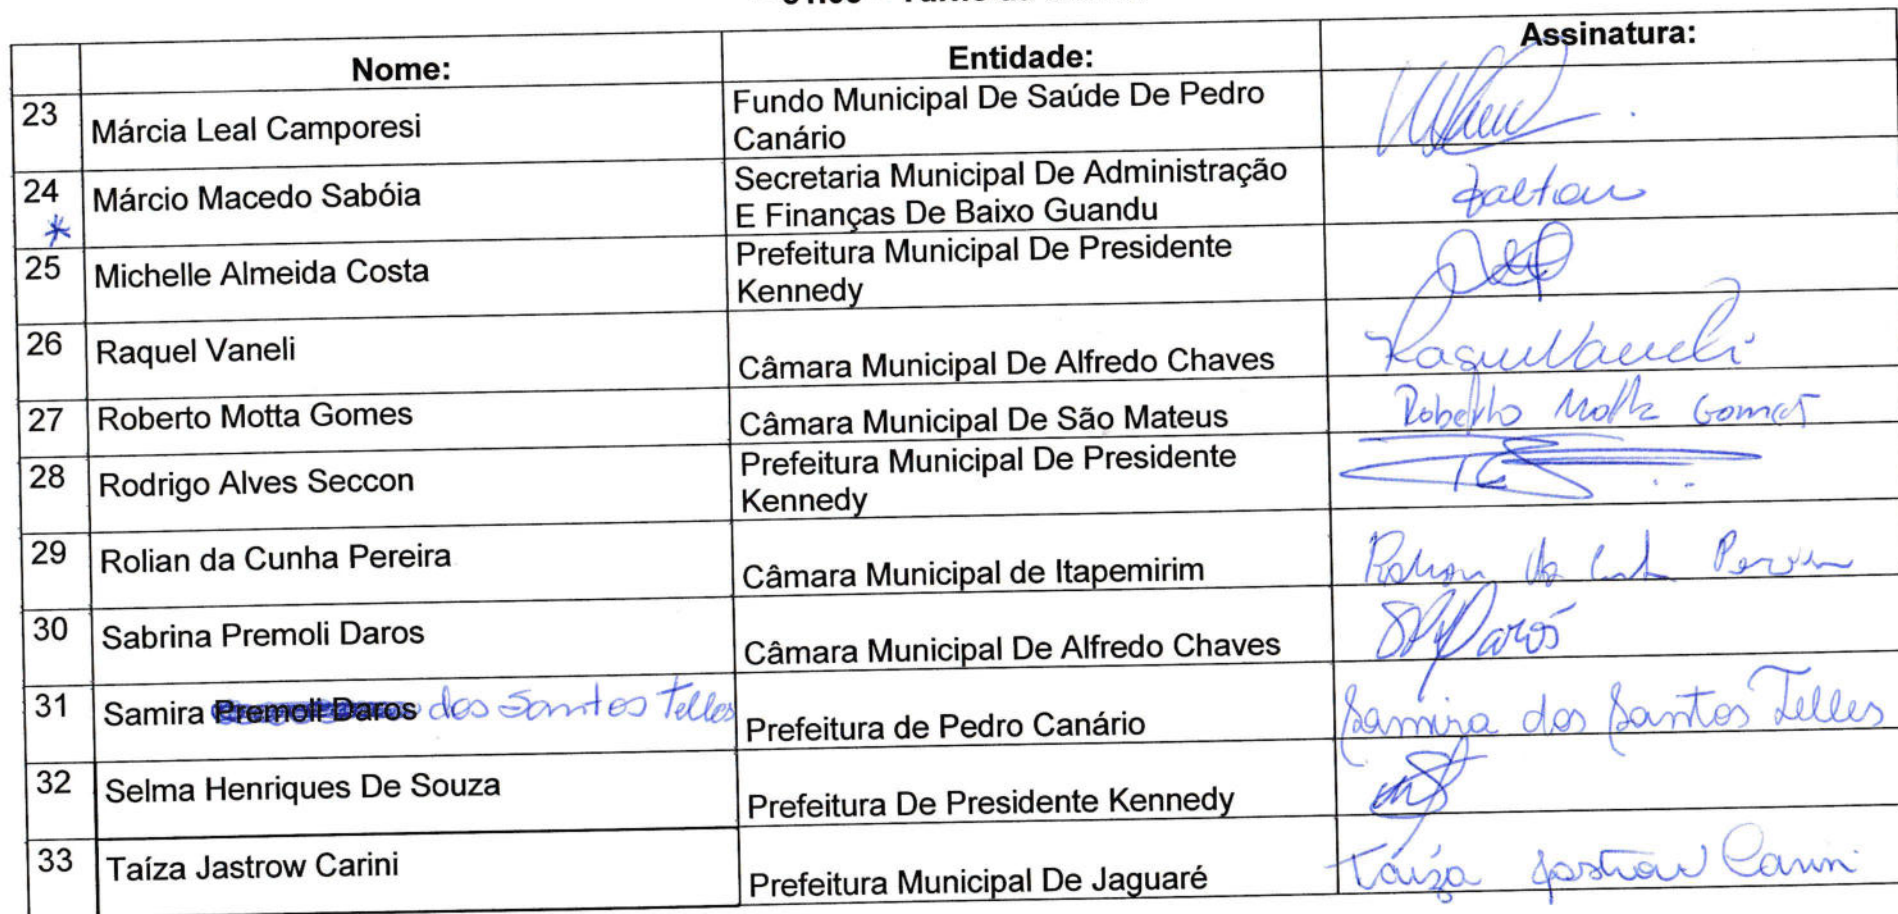 Nome: Entidade: Assinatura:
23 Márcia Leal Camporesi Fundo Municipal De Saúde De Pedro
Canário
24 Márcio Macedo Sabóia Secretaria Municipal De Administração
* E Finanças De Baixo Guandu
25 Michelle Almeida Costa Prefeitura Municipal De Presidente
Kennedy
26 Raquel Vaneli Câmara Municipal De Alfredo Chaves Raquel Vaneli
27 Roberto Motta Gomes Câmara Municipal De São Mateus Roberto Motta Gomes
28 Rodrigo Alves Seccon Prefeitura Municipal De Presidente
Kennedy
29 Rolian da Cunha Pereira Câmara Municipal de Itapemirim Rolian da Cunha Pereira
30 Sabrina Premoli Daros Câmara Municipal De Alfredo Chaves Darós
31 Samira Premoli Daros dos Santos Telles Prefeitura de Pedro Canário Samira dos Santos Telles
32 Selma Henriques De Souza Prefeitura De Presidente Kennedy
33 Taíza Jastrow Carini Prefeitura Municipal De Jaguaré Taíza Jastrow Carini